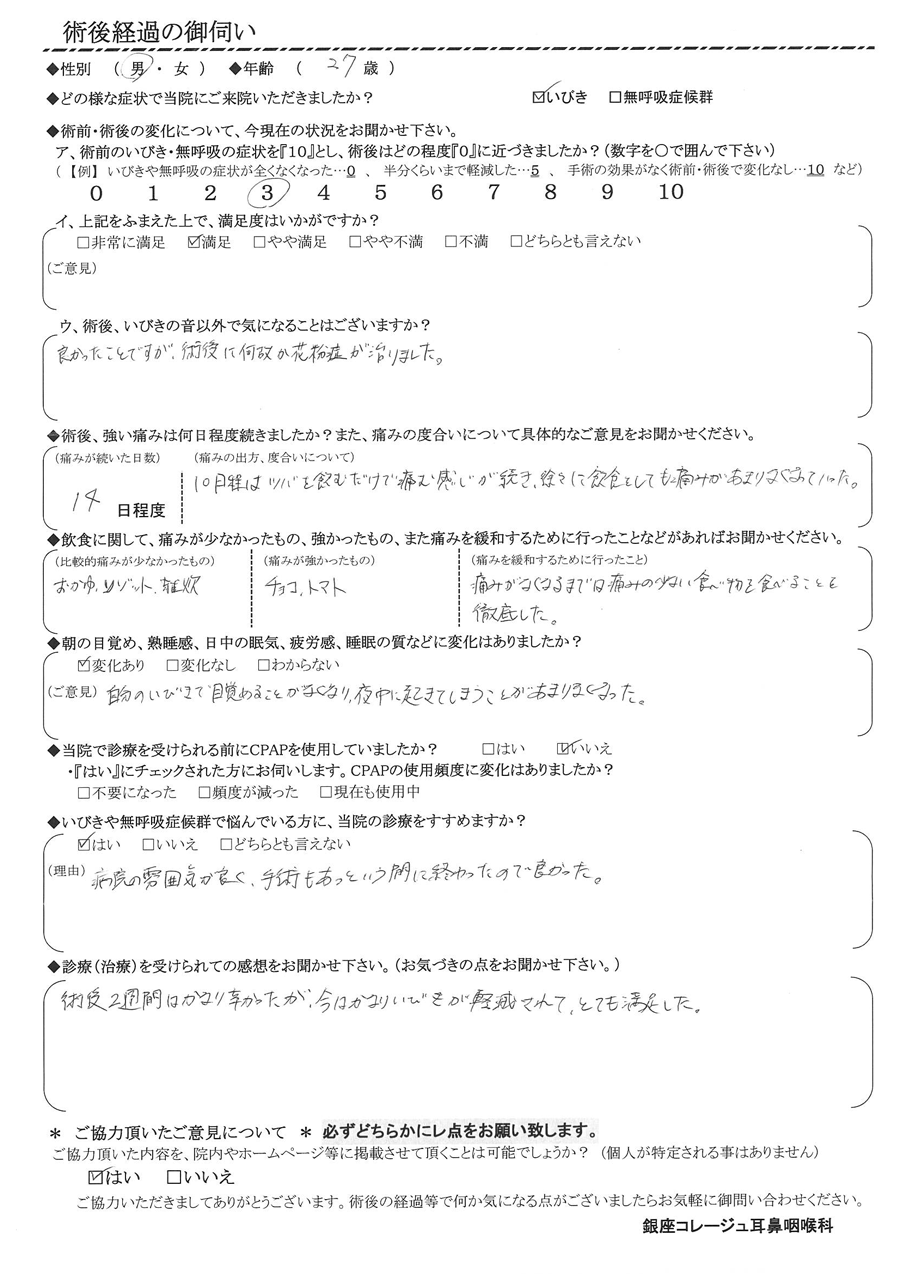 術後経過の御伺い
◆性別 （ 男 ・ 女 ） ◆年齢 （ 27 歳 ）
◆どの様な症状で当院にご来院いただきましたか？ ☑いびき □無呼吸症候群
◆術前・術後の変化について、今現在の状況をお聞かせ下さい。
ア、術前のいびき・無呼吸の症状を『10』とし、術後はどの程度『0』に近づきましたか？（数字を〇で囲んで下さい）
（ 【例】 いびきや無呼吸の症状が全くなくなった…0 、 半分くらいまで軽減した…5 、 手術の効果がなく術前・術後で変化なし…10 など）
0 1 2 3 4 5 6 7 8 9 10
イ、上記をふまえた上で、満足度はいかがですか？
□非常に満足 ☑満足 □やや満足 □やや不満 □不満 □どちらとも言えない
（ご意見）
ウ、術後、いびきの音以外で気になることはございますか？
良かったことですが、術後に何故か花粉症が治りました。
◆術後、強い痛みは何日程度続きましたか？また、痛みの度合いについて具体的なご意見をお聞かせください。
（痛みが続いた日数） （痛みの出方、度合いについて）
14 日程度 10日程はツバを飲むだけで痛む感じが続き、徐々に飲食をしても痛みがあまりなくなっていった。
◆飲食に関して、痛みが少なかったもの、強かったもの、また痛みを緩和するために行ったことなどがあればお聞かせください。
（比較的痛みが少なかったもの） （痛みが強かったもの） （痛みを緩和するために行ったこと）
おかゆ、リゾット、雑炊 チョコ、トマト 痛みがなくなるまでは痛みの少ない食べ物を食べることを
徹底した。
◆朝の目覚め、熟睡感、日中の眠気、疲労感、睡眠の質などに変化はありましたか？
☑変化あり □変化なし □わからない
（ご意見） 自分のいびきで目覚めることがなくなり、夜中に起きてしまうことがあまりなくなった。
◆当院で診療を受けられる前にCPAPを使用していましたか？ □はい ☑いいえ
・『はい』にチェックされた方にお伺いします。CPAPの使用頻度に変化はありましたか？
□不要になった □頻度が減った □現在も使用中
◆いびきや無呼吸症候群で悩んでいる方に、当院の診療をすすめますか？
☑はい □いいえ □どちらとも言えない
（理由） 病院の雰囲気が良く、手術もあっという間に終わったので良かった。
◆診療（治療）を受けられての感想をお聞かせ下さい。（お気づきの点をお聞かせ下さい。）
術後2週間はかなり辛かったが、今はかなりいびきが軽減されて、とても満足した。
＊ ご協力頂いたご意見について ＊ 必ずどちらかにレ点をお願い致します。
ご協力頂いた内容を、院内やホームページ等に掲載させて頂くことは可能でしょうか？ （個人が特定される事はありません）
☑はい □いいえ
ご協力いただきましてありがとうございます。術後の経過等で何か気になる点がございましたらお気軽に御問い合わせください。
銀座コレージュ耳鼻咽喉科